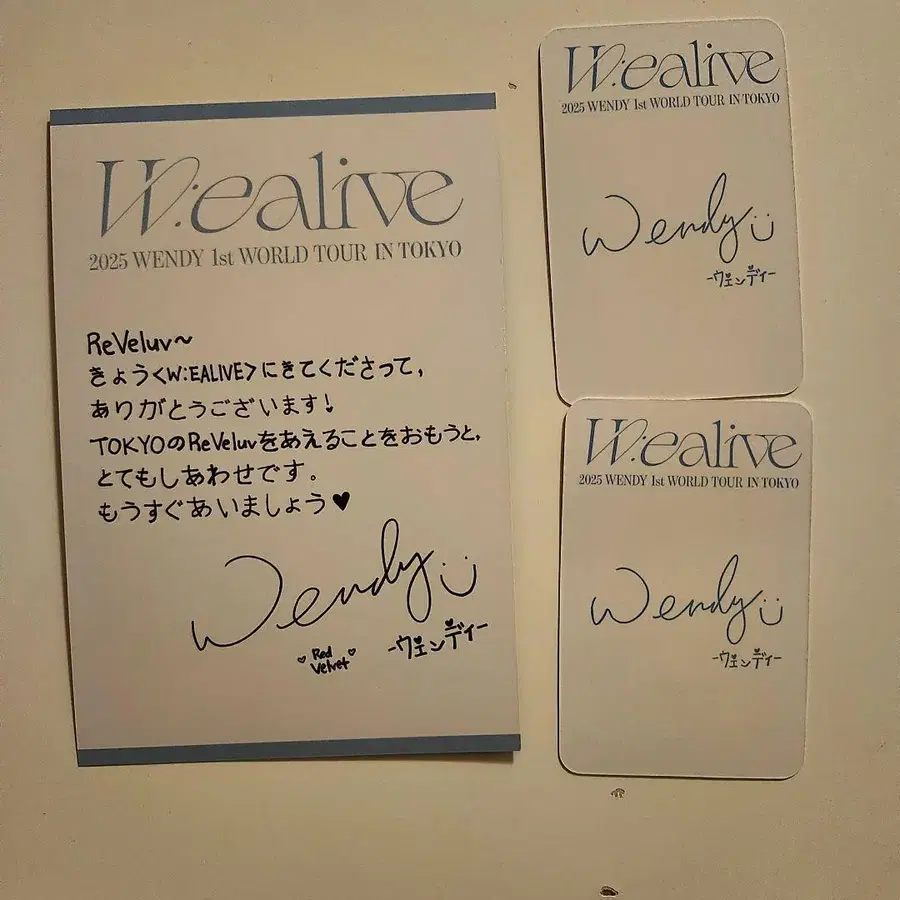 W:ealive
2025 WENDY 1st WORLD TOUR IN TOKYO
ReVeluv~
きょう<W:EALIVE>にきてくださって,
ありがとうございます!
TOKYOのReVeluvをあえることをおもうと,
とてもしあわせです。
もうすぐあいましょう♥
Wendy
Red
Velvet
-ウェンディ-
W:ealive
2025 WENDY 1st WORLD TOUR IN TOKYO
Wendy
-ウェンディ-
W:ealive
2025 WENDY 1st WORLD TOUR IN TOKYO
Wendy
-ウェンディ-